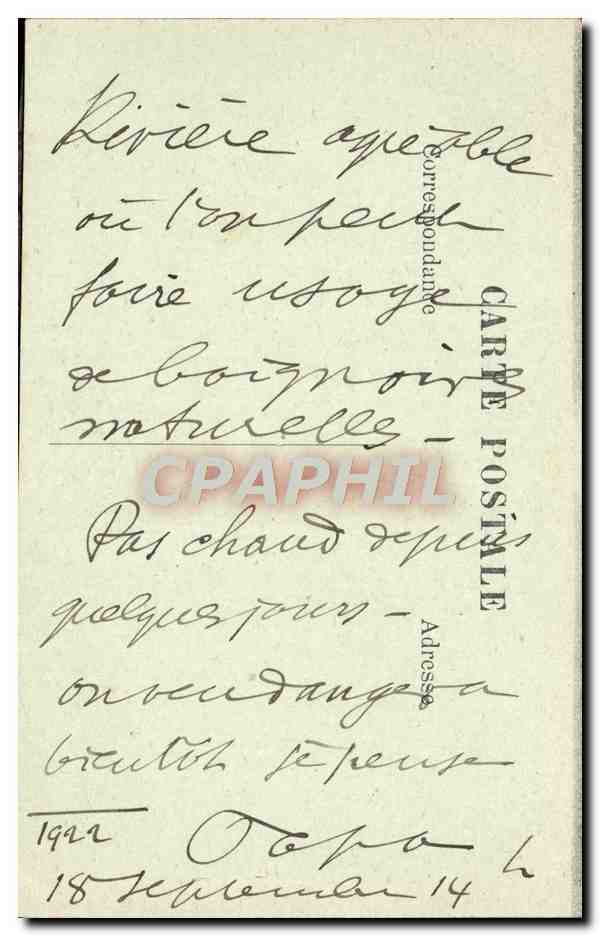 Rivière agréable
où l'on peut
faire usage
de baignoires
naturelles -
Pas chaud depuis
quelques jours -
on vendangera
bientôt je pense
1922
18 septembre 14 h
Correspondance
CARTE POSTALE
Adresse
CPAPHIL